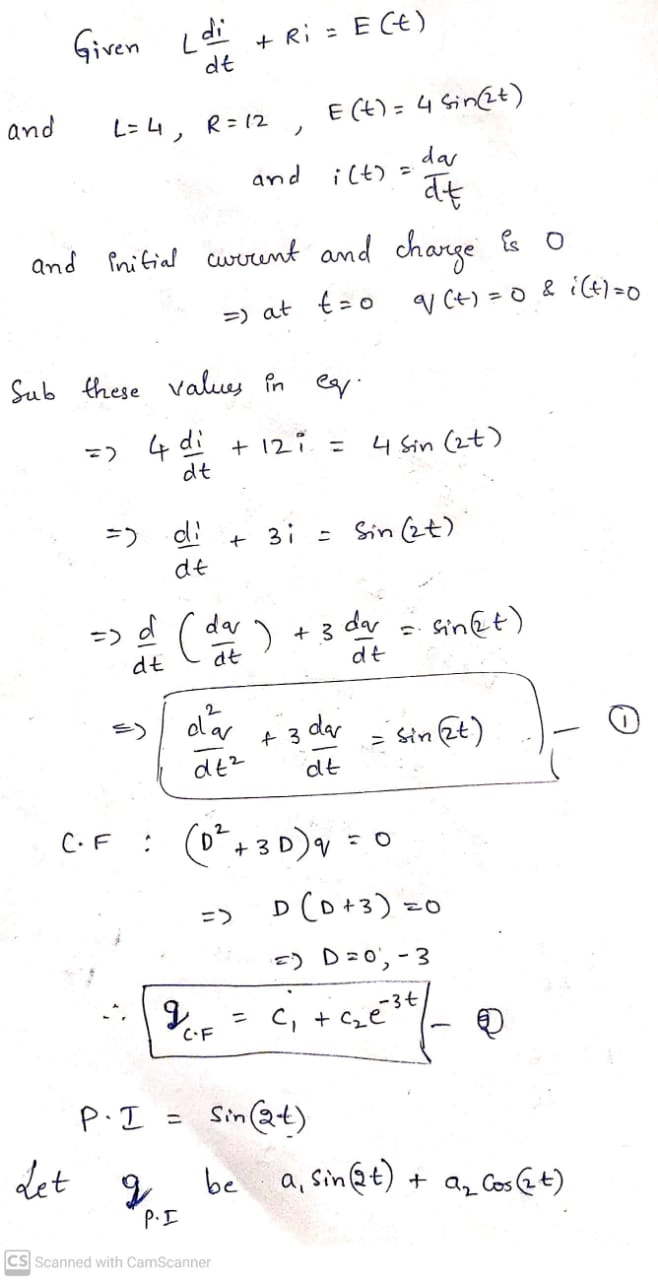 Given L di/dt + Ri = E(t)
and L=4, R=12, E(t) = 4 sin(2t)
and i(t) = dq/dt
and initial current and charge is 0
=> at t=0 q(t)=0 & i(t)=0
Sub these values in eq.
=> 4 di/dt + 12i = 4 sin(2t)
=> di/dt + 3i = sin(2t)
=> d/dt (dq/dt) + 3 dq/dt = sin(2t)
=> d²q/dt² + 3 dq/dt = sin(2t) — ①
C.F : (D² + 3D)q = 0
=> D(D+3) = 0
=> D=0, -3
∴ q_C.F = C₁ + C₂e^-3t — ②
P.I = sin(2t)
Let q_P.I be a₁ sin(2t) + a₂ cos(2t)
CS Scanned with CamScanner